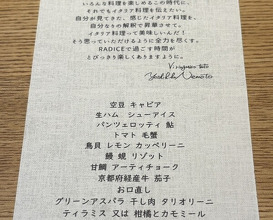 いろんな料理を楽しめるこの時代に、
それでもイタリア料理を伝えたい。
自分が見てきた、感じたイタリア料理を、
自分なりの解釈で昇華させて。
イタリア料理って美味しいんだ！
そう思っていただけるように全力を尽くす。
RADICEで過ごす時間が
とびっきり楽しくありますように。
空豆 キャビア
生ハム、シューアイス
パンツェロッティ 鮎
トマト 毛蟹
鳥貝 レモン カッペリーニ
鰻 蜆 リゾット
甘鯛 アーティチョーク
京都府経産牛 茄子
お口直し
グリーンアスパラ 干し肉 タリオリーニ
ティラミス 又は 柑橘とカモミール